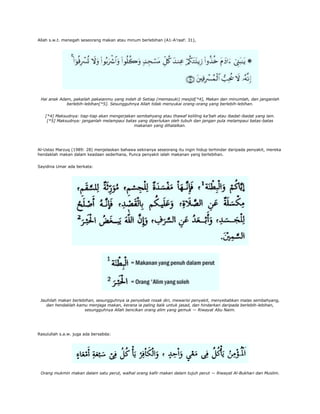 Allah s.w.t. menegah seseorang makan atau minum berlebihan (A1-A'raaf: 31),
۞ يَـٰبَنِىٓ ءَادَمَ خُذُوا۟ زِينَتَكُمْ عِندَ كُلِّ مَسْجِدٍ وَكُلُوا۟ وَٱشْرَبُوا۟ وَلَا تُسْرِفُوٓا۟ ۚ
إِنَّهُۥ لَا يُحِبُّ ٱلْمُسْرِفِينَ ﴿٣١﴾
Hai anak Adam, pakailah pakaianmu yang indah di Setiap (memasuki) mesjid[*4], Makan dan minumlah, dan janganlah
berlebih-lebihan[*5]. Sesungguhnya Allah tidak menyukai orang-orang yang berlebih-lebihan.
[*4] Maksudnya: tiap-tiap akan mengerjakan sembahyang atau thawaf keliling ka'bah atau ibadat-ibadat yang lain.
[*5] Maksudnya: janganlah melampaui batas yang diperlukan oleh tubuh dan jangan pula melampaui batas-batas
makanan yang dihalalkan.
Al-Ustaz Marzuq (1989: 28) menjelaskan bahawa sekiranya seseorang itu ingin hidup terhindar daripada penyakit, mereka
hendaklah makan dalam keadaan sederhana. Punca penyakit ialah makanan yang berlebihan.
Sayidina Umar ada berkata:
إِيَّاكُمْ وَالْبِطْنَةَ¹، فَإِنَّهَا مَفْسَدَةٌ لِلْجِسْمِ، مُوَرِّثَةٌ لِلسَّقَمِ،
مَكْسَلَةٌ عَنِ الصَّلَاةِ، وَعَلَيْكُمْ بِالْقَصْدِ، فَإِنَّهُ أَصْلَحُ
لِلْجَسَدِ، وَأَبْعَدُ مِنَ السَّرَفِ، وَإِنَّ اللّٰهَ يَبْغَضُ الْحَبْرَ²
السَّمِيْنَ.
¹ الْبِطْنَةَ = Makanan yang penuh dalam perut
² الْحَبْرَ = Orang 'Alim yang soleh
Jauhilah makan berlebihan, sesungguhnya ia penyebab rosak diri, mewarisi penyakit, menyebabkan malas sembahyang,
dan hendaklah kamu menjaga makan, kerana ia paling baik untuk jasad, dan hindarkan daripada berlebih-lebihan,
sesungguhnya Allah bencikan orang alim yang gemuk — Riwayat Abu Naim.
Rasulullah s.a.w. juga ada bersabda:
الْمُؤْمِنُ يَأْكُلُ فِي مَعْيٍ وَاحِدٍ، وَالْكَافِرُ يَأْكُلُ فِي سَبْعَةِ أَمْعَاءٍ
Orang mukmin makan dalam satu perut, walhal orang kafir makan dalam tujuh perut — Riwayat Al-Bukhari dan Muslim.